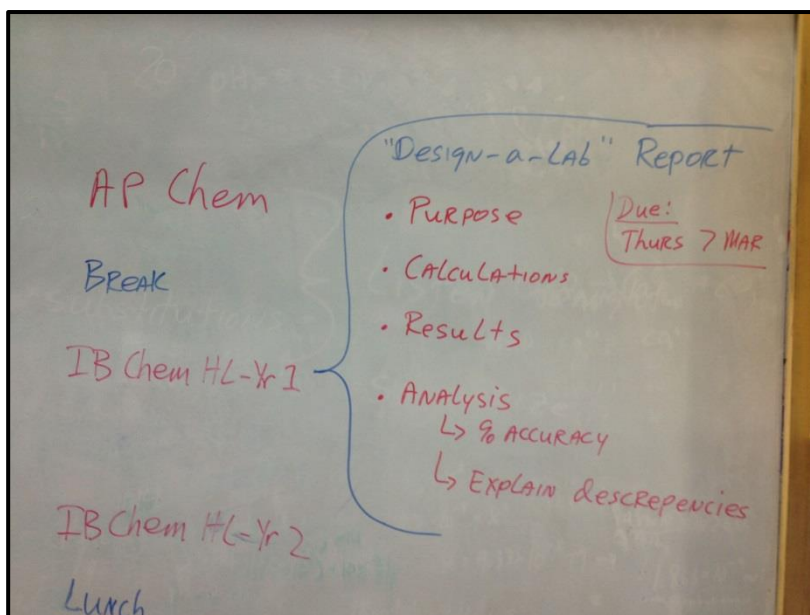 AP Chem
BREAK
IB Chem HL-Yr 1
IB Chem HL-Yr 2
Lunch
"DESIGN-a-LAb" REPORT
• PURPOSE
Due:
THURS 7 MAR
• CALCULAtIONS
• RESULtS
• ANALYSIS
↳ % ACCURACY
↳ EXPLAIN dESCREPENCIES